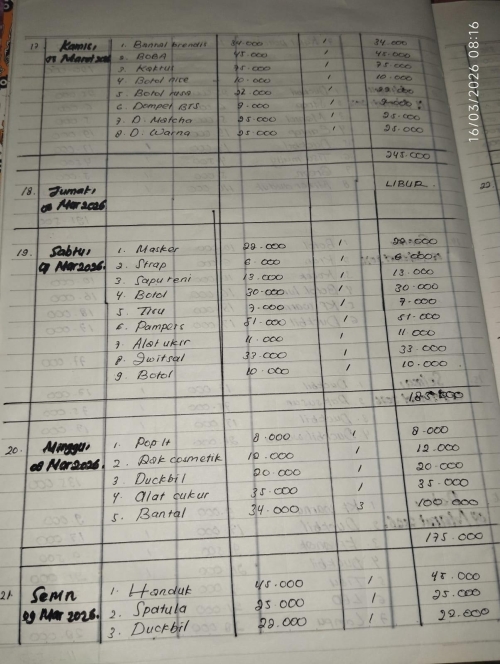 16/03/2026 08:16
17. Kamis, 1. Bantal 34.000 1 34.000
05 Maret 2026 2. BOBA 45.000 1 45.000
3. Kaktus 75.000 1 75.000
4 Botol nice 10.000 1 10.000
5. Botol rusa 22.000 1 22.000
6. Dompet BTS 9.000 1 9.000
7. D. Matcha 25.000 1 25.000
8. D. Warna 25.000 1 25.000
245.000
18. Jumat, LIBUR
Mar 2026
19. Sabtu, 1. Masker 22.000 1 22.000
Mar 2026. 2. Strap 6.000 1 6.000
3. Sapu teni 13.000 1 13.000
4. Botol 30.000 1 30.000
5. Tisu 7.000 1 7.000
6. Pampers 51.000 1 51.000
7. Alat ukir 11.000 1 11.000
8. Zwitsal 33.000 1 33.000
9. Botol 10.000 1 10.000
20. Minggu, 1. Pop It 8.000 1 8.000
08 Mar 2026. 2. Rak cosmetik 12.000 1 12.000
3. Duckbil 20.000 1 20.000
4. alat cukur 35.000 1 35.000
5. Bantal 34.000 3 100.000
175.000
21. Senin 1. Handuk 45.000 1 45.000
09 Mar 2026. 2. Spatula 25.000 1 25.000
3. Duckbil 22.000 1 22.000
22.